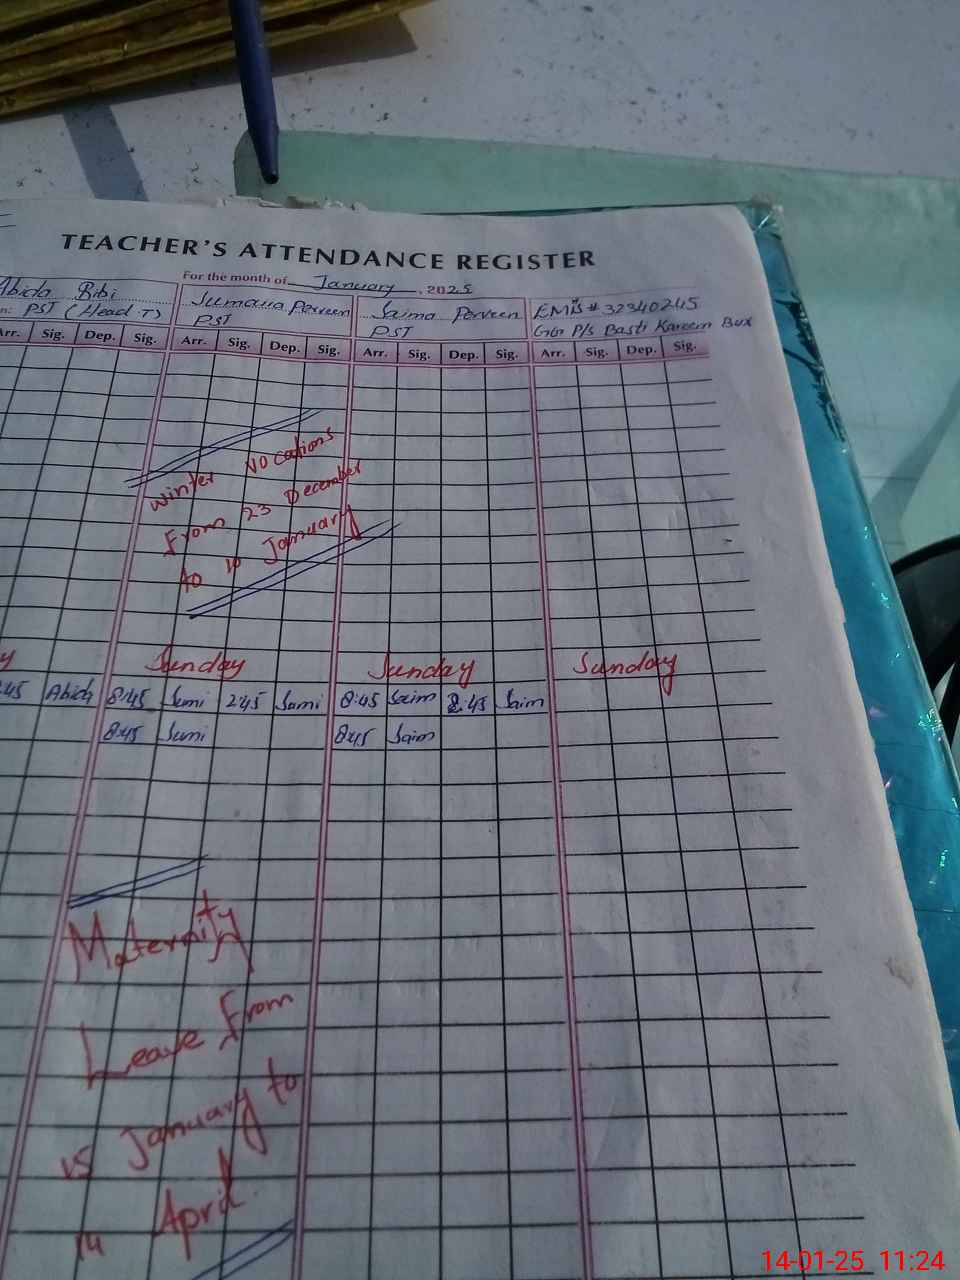 TEACHER'S ATTENDANCE REGISTER
For the month of January, 2025
Abida Bibi
Jumaua Perveen
Saima Perveen
EMIS # 32340245
n: PST (Head T)
PST
PST
P/s Basti Kareem Bux
Arr. Sig. Dep. Sig. Arr. Sig. Dep. Sig. Arr. Sig. Dep. Sig. Arr. Sig. Dep. Sig.
winter Vocations
From 23 December
to 10 January
y Sunday Sunday Sunday
:45 Abida 8:45 Jumi 2:45 Jumi 8:45 Saim 2:45 Saim
8:45 Jumi 8:45 Saim
Maternity
Leave From
15 January to
14 April
14-01-25 11:24